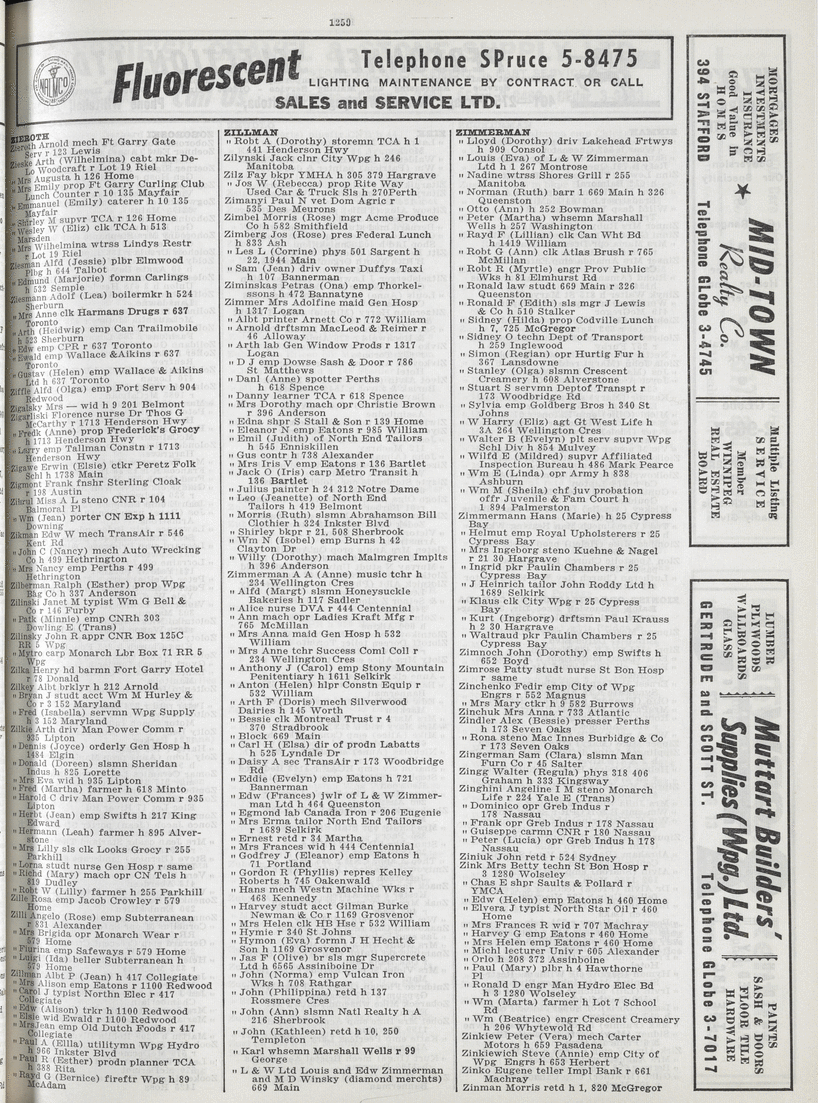 1259
NALMCO
Fluorescent
Telephone SPruce 5-8475
LIGHTING MAINTENANCE BY CONTRACT OR CALL
SALES and SERVICE LTD.
ZIEROTH
Zieroth Arnold mech Ft Garry Gate
Serv r 123 Lewis
Zieske Arth (Wilhelmina) cabt mkr De-
Lo Woodcraft r Lot 19 Riel
" Mrs Augusta h 126 Home
" Mrs Emily prop Ft Garry Curling Club
Lunch Counter r 10 135 Mayfair
" Emmanuel (Emily) caterer h 10 135
Mayfair
" Shirley M supvr TCA r 126 Home
" Wesley W (Eliz) clk TCA h 513
Marsden
" Mrs Wilhelmina wtrss Lindys Restr
r Lot 19 Riel
Ziesman Alfd (Jessie) plbr Elmwood
Plbg h 644 Talbot
" Edmund (Marjorie) formn Carlings
h 532 Semple
Ziesmann Adolf (Lea) boilermkr h 524
Sherburn
" Mrs Anne clk Harmans Drugs r 637
Toronto
" Arth (Heidwig) emp Can Trailmobile
h 523 Sherburn
" Edw emp CPR r 637 Toronto
" Ewald emp Wallace &Aikins r 637
Toronto
" Gustav (Helen) emp Wallace & Aikins
Ltd h 637 Toronto
Ziffle Alfd (Olga) emp Fort Serv h 904
Redwood
Zigalsky Mrs — wid h 9 201 Belmont
Zigarliski Florence nurse Dr Thos G
McCarthy r 1713 Henderson Hwy
" Fredk (Anne) prop Frederick's Grocy
h 1713 Henderson Hwy
" Larry emp Tallman Constn r 1713
Henderson Hwy
Zigawe Erwin (Elsie) ctkr Peretz Folk
Schl h 1738 Main
Zigmont Frank fnshr Sterling Cloak
r 198 Austin
Zihrul Miss A L steno CNR r 104
Balmoral Pl
" Wm (Jean) porter CN Exp h 1111
Downing
Zikman Edw W mech TransAir r 546
Kent Rd
" John C (Nancy) mech Auto Wrecking
Co h 499 Hethrington
" Mrs Nancy emp Perths r 499
Hethrington
Zilberman Ralph (Esther) prop Wpg
Bag Co h 337 Anderson
Zilinski Janet M typist Wm G Bell &
Co r 146 Furby
" Patk (Minnie) emp CNRh 303
Dowling E (Trans)
Zilinsky John R appr CNR Box 125C
RR 5 Wpg
" Mytro carp Monarch Lbr Box 71 RR 5
Wpg
Zilka Henry hd barmn Fort Garry Hotel
r 78 Donald
Zilkey Albt brklyr h 212 Arnold
" Bryan J studt acct Wm M Hurley &
Co r 3 152 Maryland
" Fred (Isabella) servmn Wpg Supply
h 3 152 Maryland
Zilkie Arth driv Man Power Comm r
935 Lipton
" Dennis (Joyce) orderly Gen Hosp h
1484 Elgin
" Donald (Doreen) slsmn Sheridan
Indus h 825 Lorette
" Mrs Eva wid h 935 Lipton
" Fred (Martha) farmer h 618 Minto
" Harold C driv Man Power Comm r 935
Lipton
" Herbt (Jean) emp Swifts h 217 King
Edward
" Hermann (Leah) farmer h 895 Alver-
stone
" Mrs Lilly sls clk Looks Grocy r 255
Parkhill
" Lorna studt nurse Gen Hosp r same
" Richd (Mary) mach opr CN Tels h
819 Dudley
" Robt W (Lilly) farmer h 255 Parkhill
Zille Rosa emp Jacob Crowley r 579
Home
Zilli Angelo (Rose) emp Subterranean
r 831 Alexander
" Mrs Brigida opr Monarch Wear r
579 Home
" Fiurina emp Safeways r 579 Home
" Luigi (Ida) beller Subterranean h
579 Home
Zillman Albt P (Jean) h 417 Collegiate
" Mrs Alison emp Eatons r 1100 Redwood
" Carol J typist Northn Elec r 417
Collegiate
" Edw (Alison) trkr h 1100 Redwood
" Elsie wid Ewald r 1100 Redwood
" MrsJean emp Old Dutch Foods r 417
Collegiate
" Paul A (Ellla) utilitymn Wpg Hydro
h 966 Inkster Blvd
" Paul R (Esther) prodn planner TCA
h 388 Rita
" Rayd G (Bernice) fireftr Wpg h 89
McAdam
ZILLMAN
" Robt A (Dorothy) storemn TCA h 1
441 Henderson Hwy
Zilynski Jack clnr City Wpg h 246
Manitoba
Zilz Fay bkpr YMHA h 305 379 Hargrave
" Jos W (Rebecca) prop Rite Way
Used Car & Truck Sls h 270Perth
Zimanyi Paul N vet Dom Agric r
535 Des Meurons
Zimbel Morris (Rose) mgr Acme Produce
Co h 582 Smithfield
Zimberg Jos (Rose) pres Federal Lunch
h 833 Ash
" Les L (Corrine) phys 501 Sargent h
22, 1944 Main
" Sam (Jean) driv owner Duffys Taxi
h 107 Bannerman
Ziminskas Petras (Ona) emp Thorkel-
ssons h 472 Bannatyne
Zimmer Mrs Adolfine maid Gen Hosp
h 1317 Logan
" Albt printer Arnett Co r 772 William
" Arnold drftsmn MacLeod & Reimer r
46 Alloway
" Arth lab Gen Window Prods r 1317
Logan
" D J emp Dowse Sash & Door r 786
St Matthews
" Danl (Anne) spotter Perths
h 618 Spence
" Danny learner TCA r 618 Spence
" Mrs Dorothy mach opr Christie Brown
r 396 Anderson
" Edna shpr S Stall & Son r 139 Home
" Eleanor N emp Eatons r 985 William
" Emil (Judith) of North End Tailors
h 545 Enniskillen
" Gus contr h 738 Alexander
" Mrs Iris V emp Eatons r 136 Bartlet
" Jack O (Iris) carp Metro Transit h
136 Bartlet
" Julius painter h 24 312 Notre Dame
" Leo (Jeanette) of North End
Tailors h 419 Belmont
" Morris (Ruth) slsmn Abrahamson Bill
Clothier h 324 Inkster Blvd
" Shirley bkpr r 21, 508 Sherbrook
" Wm N (Isobel) emp Burns h 42
Clayton Dr
" Willy (Dorothy) mach Malmgren Implts
h 396 Anderson
Zimmerman A A (Anne) music tchr h
234 Wellington Cres
" Alfd (Margt) slsmn Honeysuckle
Bakeries h 117 Sadler
" Alice nurse DVA r 444 Centennial
" Ann mach opr Ladies Kraft Mfg r
765 McMillan
" Mrs Anna maid Gen Hosp h 532
William
" Mrs Anne tchr Success Coml Coll r
234 Wellington Cres
" Anthony J (Carol) emp Stony Mountain
Penitentiary h 1611 Selkirk
" Anton (Helen) hlpr Constn Equip r
532 William
" Arth F (Doris) mech Silverwood
Dairies h 145 Worth
" Bessie clk Montreal Trust r 4
370 Stradbrook
" Block 669 Main
" Carl H (Elsa) dir of prodn Labatts
h 525 Lyndale Dr
" Daisy A sec TransAir r 173 Woodbridge
Rd
" Eddie (Evelyn) emp Eatons h 721
Bannerman
" Edw (Frances) jwlr of L & W Zimmer-
man Ltd h 464 Queenston
" Egmond lab Canada Iron r 206 Eugenie
" Mrs Erma tailor North End Tailors
r 1689 Selkirk
" Ernest retd r 34 Martha
" Mrs Frances wid h 444 Centennial
" Godfrey J (Eleanor) emp Eatons h
71 Portland
" Gordon R (Phyllis) repres Kelley
Roberts h 745 Oakenwald
" Hans mech Westn Machine Wks r
468 Kennedy
" Harvey studt acct Gilman Burke
Newman & Co r 1169 Grosvenor
" Mrs Helen clk HB Hse r 532 William
" Hymie r 340 St Johns
" Hymon (Eva) formn J H Hecht &
Son h 1169 Grosvenor
" Jas F (Olive) br sls mgr Supercrete
Ltd h 6565 Assiniboine Dr
" John (Norma) emp Vulcan Iron
Wks h 708 Rathgar
" John (Philippina) retd h 137
Rossmere Cres
" John (Ann) slsmn Natl Realty h A
216 Sherbrook
" John (Kathleen) retd h 10, 250
Templeton
" Karl whsemn Marshall Wells r 99
George
" L & W Ltd Louis and Edw Zimmerman
and M D Winsky (diamond merchts)
669 Main
ZIMMERMAN
" Lloyd (Dorothy) driv Lakehead Frtwys
h 909 Consol
" Louis (Eva) of L & W Zimmerman
Ltd h 1 267 Montrose
" Nadine wtrss Shores Grill r 255
Manitoba
" Norman (Ruth) barr 1 669 Main h 326
Queenston
" Otto (Ann) h 252 Bowman
" Peter (Martha) whsemn Marshall
Wells h 257 Washington
" Rayd F (Lillian) clk Can Wht Bd
h 1419 William
" Robt G (Ann) clk Atlas Brush r 765
McMillan
" Robt R (Myrtle) engr Prov Public
Wks h 81 Elmhurst Rd
" Ronald law studt 669 Main r 326
Queenston
" Ronald F (Edith) sls mgr J Lewis
& Co h 510 Stalker
" Sidney (Hilda) prop Codville Lunch
h 7, 725 McGregor
" Sidney O techn Dept of Transport
h 259 Inglewood
" Simon (Regian) opr Hurtig Fur h
367 Lansdowne
" Stanley (Olga) slsmn Crescent
Creamery h 608 Alverstone
" Stuart S servmn Deptof Transpt r
173 Woodbridge Rd
" Sylvia emp Goldberg Bros h 340 St
Johns
" W Harry (Eliz) agt Gt West Life h
3A 264 Wellington Cres
" Walter B (Evelyn) plt serv supvr Wpg
Schl Div h 854 Mulvey
" Wilfd E (Mildred) supvr Affiliated
Inspection Bureau h 486 Mark Pearce
" Wm E (Linda) opr Army h 838
Ashburn
" Wm M (Sheila) chf juv probation
offr Juvenile & Fam Court h
1 894 Palmerston
Zimmermann Hans (Marie) h 25 Cypress
Bay
" Helmut emp Royal Upholsterers r 25
Cypress Bay
" Mrs Ingeborg steno Kuehne & Nagel
r 21 30 Hargrave
" Ingrid pkr Paulin Chambers r 25
Cypress Bay
" J Heinrich tailor John Roddy Ltd h
1689 Selkirk
" Klaus clk City Wpg r 25 Cypress
Bay
" Kurt (Ingeborg) drftsmn Paul Krauss
h 2 30 Hargrave
" Waltraud pkr Paulin Chambers r 25
Cypress Bay
Zimnoch John (Dorothy) emp Swifts h
652 Boyd
Zimrose Patty studt nurse St Bon Hosp
r same
Zinchenko Fedir emp City of Wpg
Engrs r 552 Magnus
" Mrs Mary ctkr h 9 582 Burrows
Zinchuk Mrs Anna r 733 Atlantic
Zindler Alex (Bessie) presser Perths
h 173 Seven Oaks
" Rona steno Mac Innes Burbidge & Co
r 173 Seven Oaks
Zingerman Sam (Clara) slsmn Man
Furn Co r 45 Salter
Zingg Walter (Regula) phys 318 406
Graham h 333 Kingsway
Zinghini Angeline I M steno Monarch
Life r 224 Yale E (Trans)
" Dominico opr Greb Indus r
178 Nassau
" Frank opr Greb Indus r 178 Nassau
" Guiseppe carmn CNR r 180 Nassau
" Peter (Lucia) opr Greb Indus h 178
Nassau
Ziniuk John retd r 524 Sydney
Zink Mrs Betty techn St Bon Hosp r
3 1280 Wolseley
" Chas E shpr Saults & Pollard r
YMCA
" Edw (Helen) emp Eatons h 460 Home
" Elvera J typist North Star Oil r 460
Home
" Mrs Frances R wid r 707 Machray
" Harvey G emp Eatons r 460 Home
" Mrs Helen emp Eatons r 460 Home
" Michl lecturer Univ r 605 Alexander
" Orlo h 208 372 Assinboine
" Paul (Mary) plbr h 4 Hawthorne
Pl
" Ronald D engr Man Hydro Elec Bd
h 3 1280 Wolseley
" Wm (Marta) farmer h Lot 7 School
Rd
" Wm (Beatrice) engr Crescent Creamery
h 206 Whytewold Rd
Zinkiew Peter (Vera) mech Carter
Motors h 659 Pasadena
Zinkiewich Steve (Annie) emp City of
Wpg Engrs h 653 Herbert
Zinko Eugene teller Impl Bank r 661
Machray
Zinman Morris retd h 1, 820 McGregor
MORTGAGES
INVESTMENTS
INSURANCE
Good Value in
HOMES
394 STAFFORD
★ MID-TOWN
Realty Co.
Telephone GLobe 3-4745
Multiple Listing
SERVICE
Member
WINNIPEG
REAL ESTATE
BOARD
LUMBER
PLYWOODS
WALLBOARDS
GLASS
GERTRUDE and SCOTT ST.
Muttart Builders'
Supplies (Wpg.) Ltd
Telephone GLobe 3-7017
PAINTS
SASH & DOORS
FLOOR TILE
HARDWARE